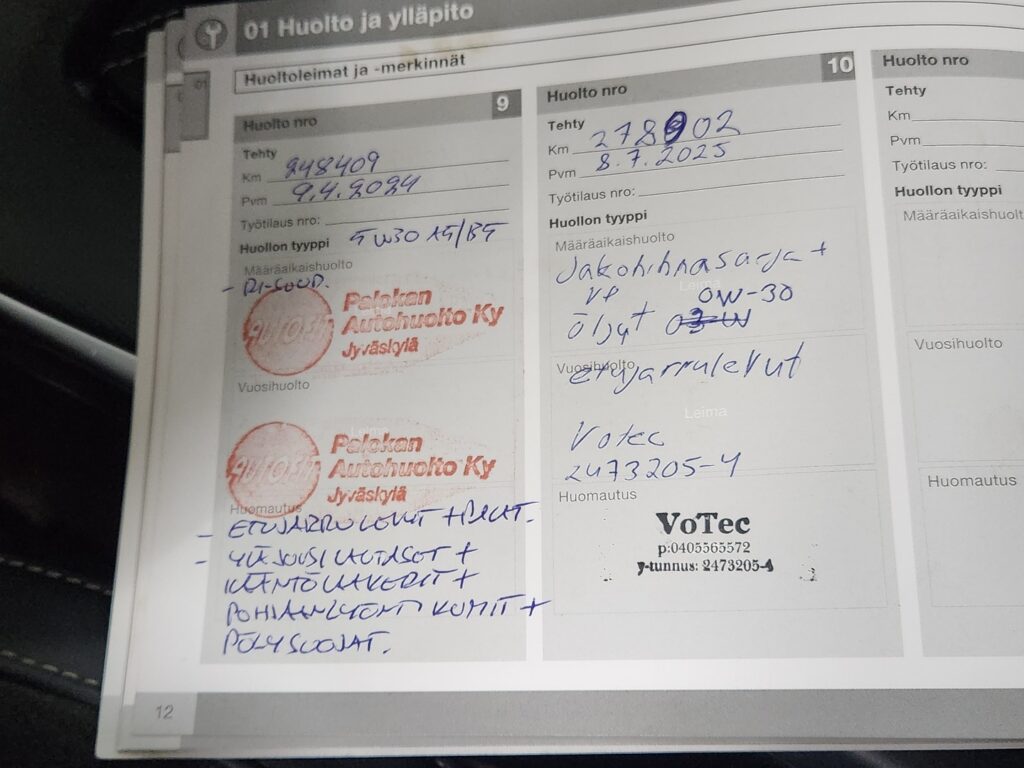 01 Huolto ja ylläpito
01
Huoltoleimat ja -merkinnät
Huolto nro 9
Tehty
Km 248409
Pvm 9.4.2024
Työtilaus nro:
Huollon tyyppi 5W30 A5/B5
Määräaikaishuolto
Palokan
Autohuolto Ky
Jyväskylä
Vuosihuolto
Leima
Palokan
Autohuolto Ky
Jyväskylä
Huomautus
- ETUJARRULEVYT + PALAT.
- YLÄJOUSILAUTASET +
KÄÄNTÖLAAKERIT +
POHJAANLYÖNTI KUMIT +
PÖLYSUOJAT.
12
Huolto nro 10
Tehty
Km 278902
Pvm 8.7.2025
Työtilaus nro:
Huollon tyyppi
Määräaikaishuolto
Jakohihnasarja +
Leima
VP
Öljyt 0W-30
Vuosihuolto
etujarrulevyt
Leima
Votec
2473205-4
Huomautus
VoTec
p:0405565572
y-tunnus: 2473205-4
Huolto nro
Tehty
Km
Pvm
Työtilaus nro:
Huollon tyyppi
Vuosihuolto
Huomautus